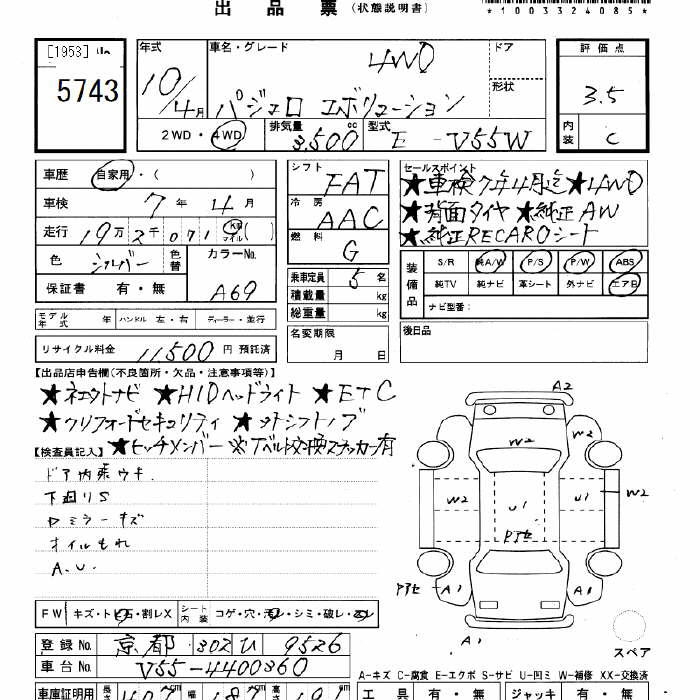 出品票（状態説明書）
*1003324085*
[1953]
5743
年式 10/4月
車名・グレード 4WD
パジェロ エボリューション
ドア
形状
2WD・4WD
排気量 3,500 cc
型式 E-V55W
評価点 3.5
内装 C
車歴 自家用・( )
車検 7年4月
走行 19万2千071 Km マイル ( )
色 シルバー 色替
カラーNo. A69
保証書 有・無
シフト FAT
冷房 AAC
燃料 G
乗車定員 5名
積載量 kg
総重量 kg
セールスポイント
★車検7年4月迄★4WD
★背面タイヤ★純正AW
★純正RECAROシート
装備品 S/R 純A/W P/S P/W ABS
純TV 純ナビ 革シート 外ナビ エアB
ナビ型番：
モデル年式 年 ハンドル 左・右 ディーラー・並行
名変期限 月 日
後日品
リサイクル料金 11,500円 預託済
【出品店申告欄(不良箇所・欠品・注意事項等)】
★ネエウトナビ ★HIDヘッドライト ★ETC
★クリフォードセキュリティ ★ソトシフトノブ
★ヒッチメンバー ※Tベルト交換ステッカー有
【検査員記入】
ドア内張ウキ
下廻りS
ロミラーキズ
オイルもれ
A.U.
A2
W2 W2 W2
W2 U1 U1 W2
Pアセ
Pアセ A1 A1
A1
スペア
FW キズ・トビ石・割レX
シート内装 コゲ・穴・汚レ・シミ・破レ・スレ
登録No. 京都 302 ひ 9526
車台No. V55-4400360
A-キズ C-腐食 E-エクボ S-サビ U-凹ミ W-補修 XX-交換済
車庫証明用 長さ 407 幅 187 高さ 191
工具 有・無 ジャッキ 有・無